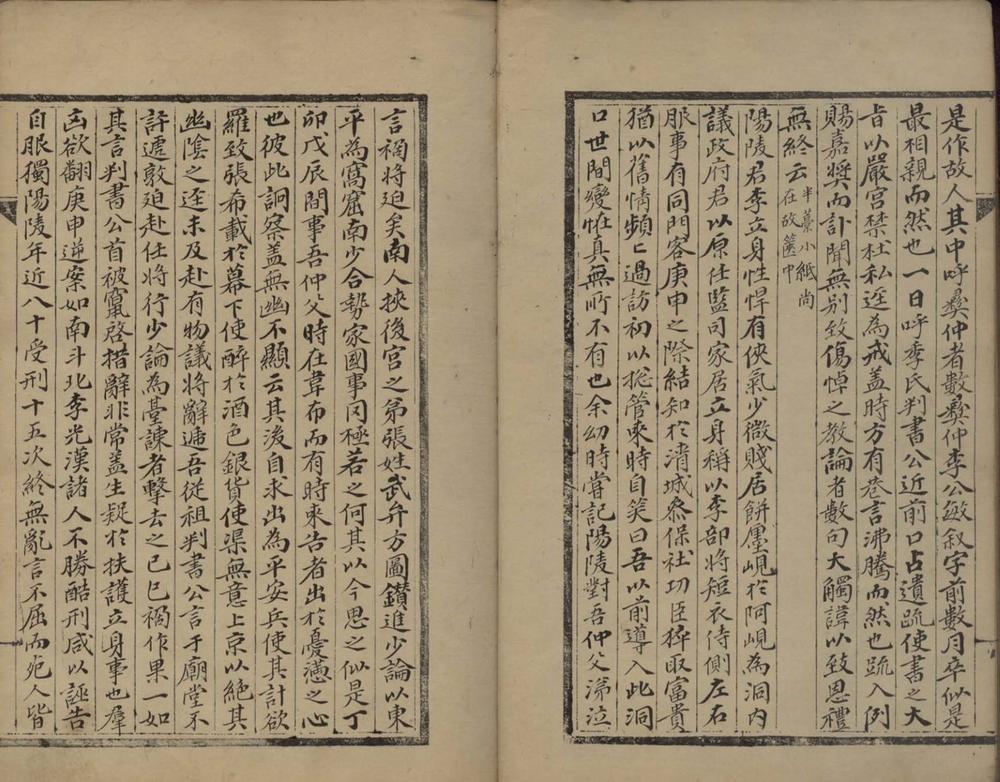 是作故人其中呼彜仲者數彜仲李公敏叙字前數月卒似是
最相親而然也一日呼季氏判書公近前口占遺疏使書之大
旨以嚴宮禁杜私逕爲戒盖時方有巷言沸騰而然也疏入例
賜嘉奬而訃聞無別致傷悼之敎論者數句大觸諱以致恩禮
無終云半藁小紙尚在故篋中
陽陵君李立身性悍有俠氣少微賤居餠墨峴於阿峴爲洞內
議政府君以原任監司家居立身稱以李部將短衣侍側左右
服事有同門客庚申之際結知於淸城叅保社功臣猝取富貴
猶以舊情頻〻過訪初以捴管來時自笑曰吾以前導入此洞
口世間變恠真無所不有也余幼時嘗記陽陵對吾仲父涕泣
言禍將迫矣南人挾後宮之弟張姓武弁方圖鑚進少論以東
平爲窩窟南少合勢家國事罔極若之何其以今思之似是丁
卯戊辰間事吾仲父時在韋布而有時來告者出於憂懣之心
也彼此詗察盖無幽不顯云其後自求出爲平安兵使其計欲
羅致張希載於幕下使醉於酒色銀貨使渠無意上京以絶其
幽陰之逕未及赴有物議將辭遞吾從祖判書公言于廟堂不
許遞敦迫赴任將行少論爲臺諫者擊去之己巳禍作果一如
其言判書公首被竄啓措辭非常盖生疑於扶護立身事也羣
凶欲翻庚申逆案如南斗北李光漢諸人不勝酷刑咸以誣告
自服獨陽陵年近八十受刑十五次終無亂言不屈而死人皆